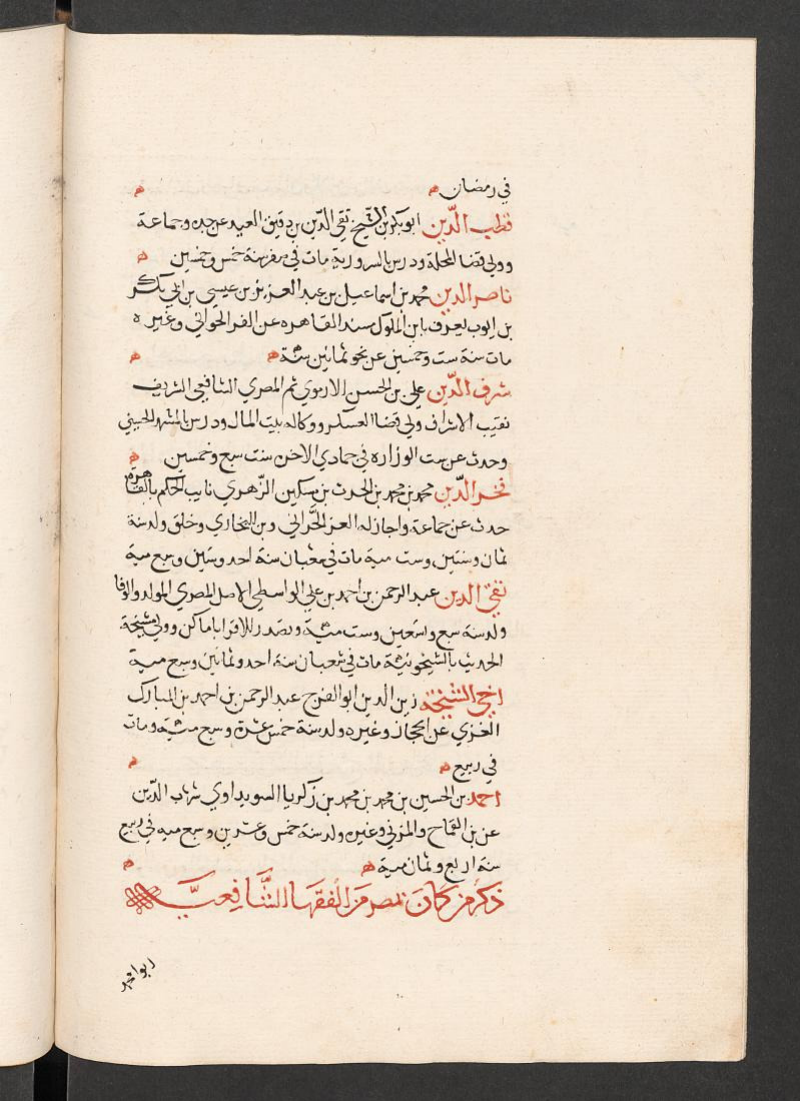 في رمضان
قطب الدين ابو بكر بن الشيخ تقي الدين بن دقيق العيد عن جده وجماعة
وولي قضا المحلة ودرس بالسرورية مات في صفر سنة خمس وخمسين
ناصر الدين محمد بن اسماعيل بن عبد العزيز بن عيسى بن ابي بكر
بن ايوب يعرف بابن الملوك مسند القاهره عن العز الحراني وغيره
مات سنة ست وخمسين عن نحو ثمانين سنة
شرف الدين علي بن الحسين الارموي ثم المصري الشافعي الشريف
نقيب الاشراف ولي قضا العسكر ووكالة بيت المال ودرس بالمشهد الحسيني
وحدث عن ست الوزاره في جمادي الاخره سنت سبع وخمسين
فخر الدين محمد بن محمد بن الحرث بن مسكين الزهري نايب الحكم بالقاهرة
حدث عن جماعة واجاز له العز الحراني وبن البخاري وخلق ولد سنة
ثمان وستين وست مية مات في شعبان سنة احد وستين وسبع مية
تقي الدين عبد الرحمن بن احمد بن علي الواسطي الاصل المصري المولد والوفا
ولد سنة سبع وتسعين وست مية وتصدر للاقرا باماكن وولي مشيخة
الحديث بالشيخونية مات في شعبان سنة احد وثمانين وسبع مية
اخي الشيخة زين الدين ابو الفرج عبد الرحمن بن احمد بن المبارك
الغزي عن الحجار وغيره ولد سنة خمس عشرة وسبع مية ومات
في ربيع
احمد بن الحسين بن محمد بن محمد بن زكريا السويداوي شهاب الدين
عن بن القماح والمزني وغيره ولد سنة خمس وعشرين وسبع ميه في ربيع
سنة اربع وثمان مية
ذكر من كان بمصر من الفقها الشافعية